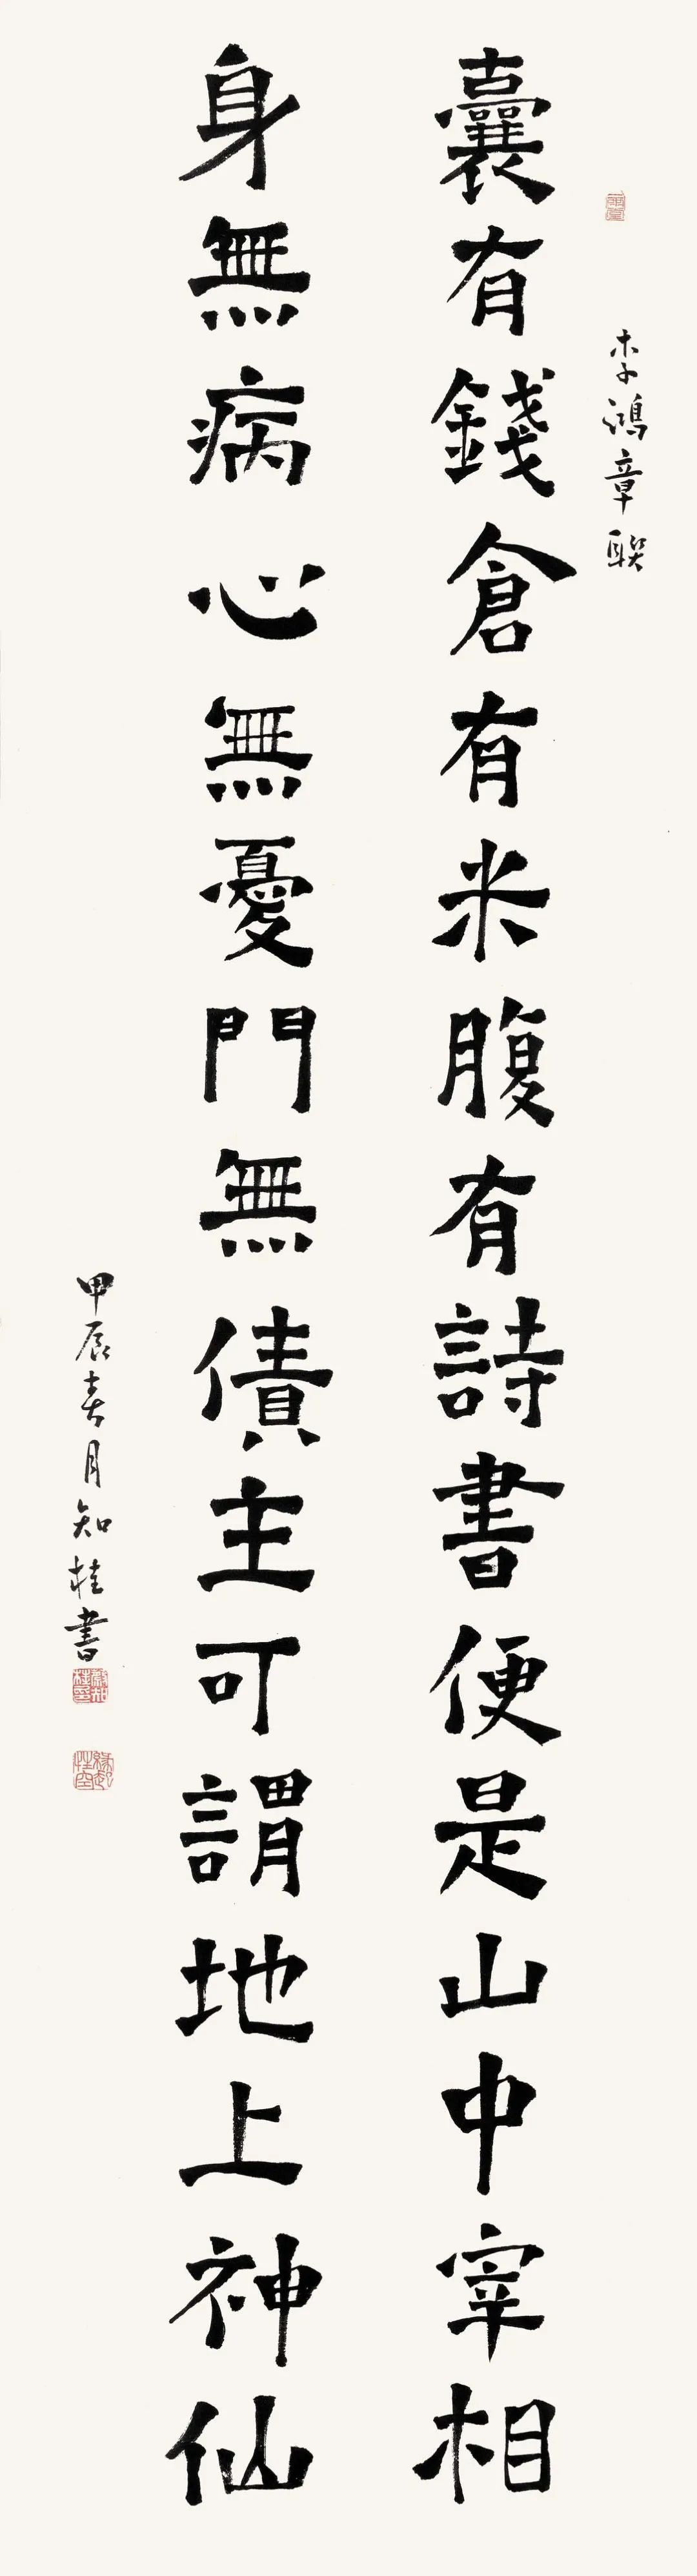 李鴻章联
囊有錢倉有米腹有詩書便是山中宰相
身無病心無憂門無債主可謂地上神仙
甲辰春月知桂書